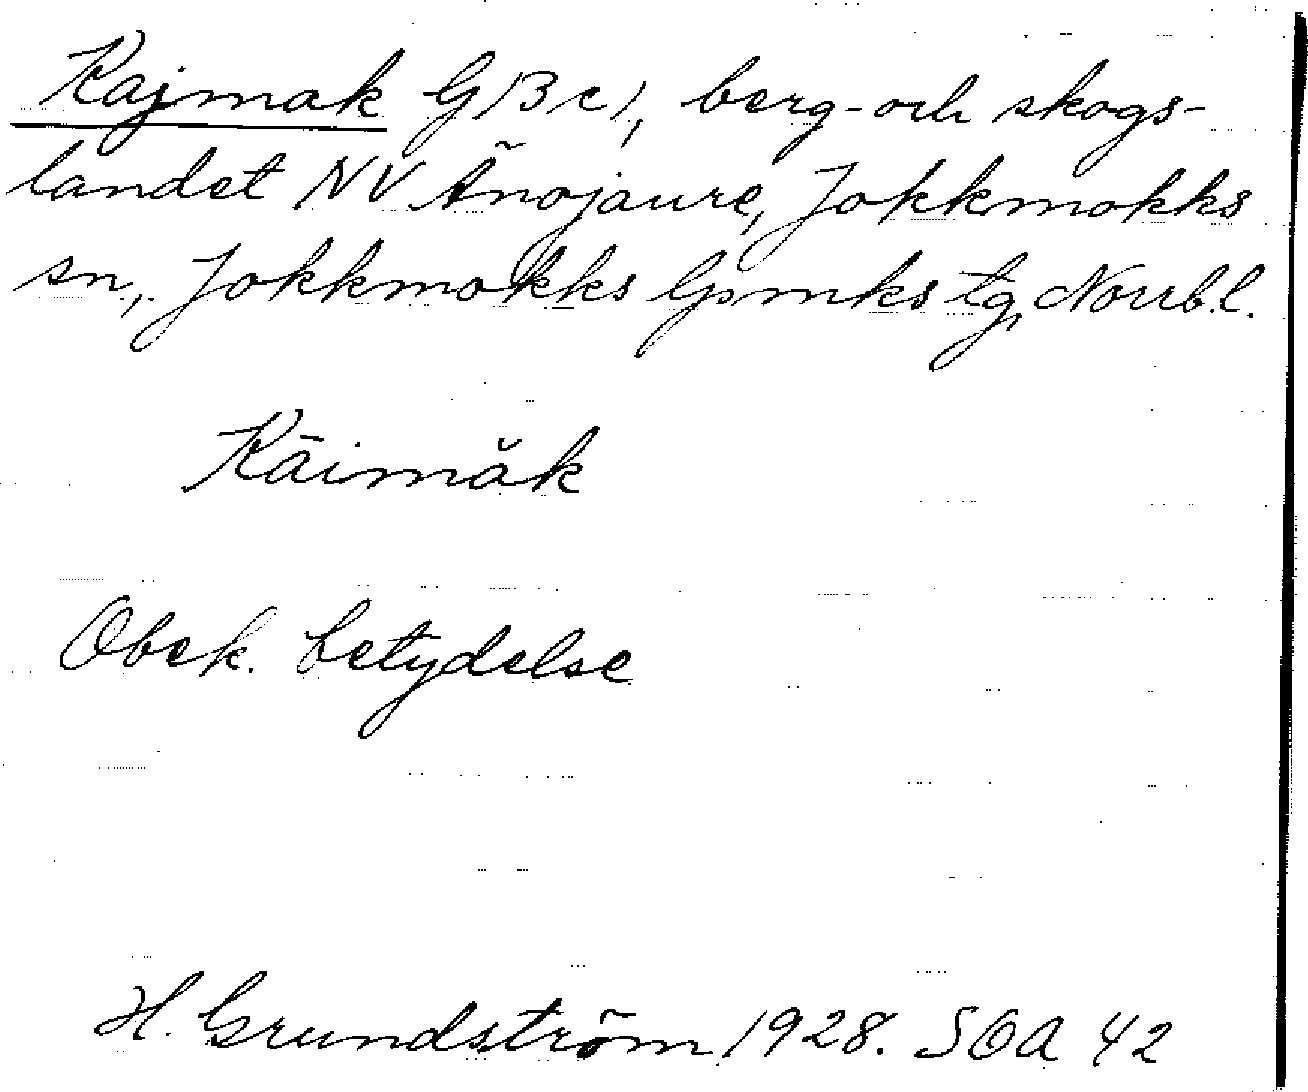 Kajmak G (Bc), berg- och skogs-
landet NV Änojaure, Jokkmokks
sn, Jokkmokks Gsmks tg, Norrb.l.
Kāimăk
Obek. betydelse
H. Grundström 1928. SOA 42